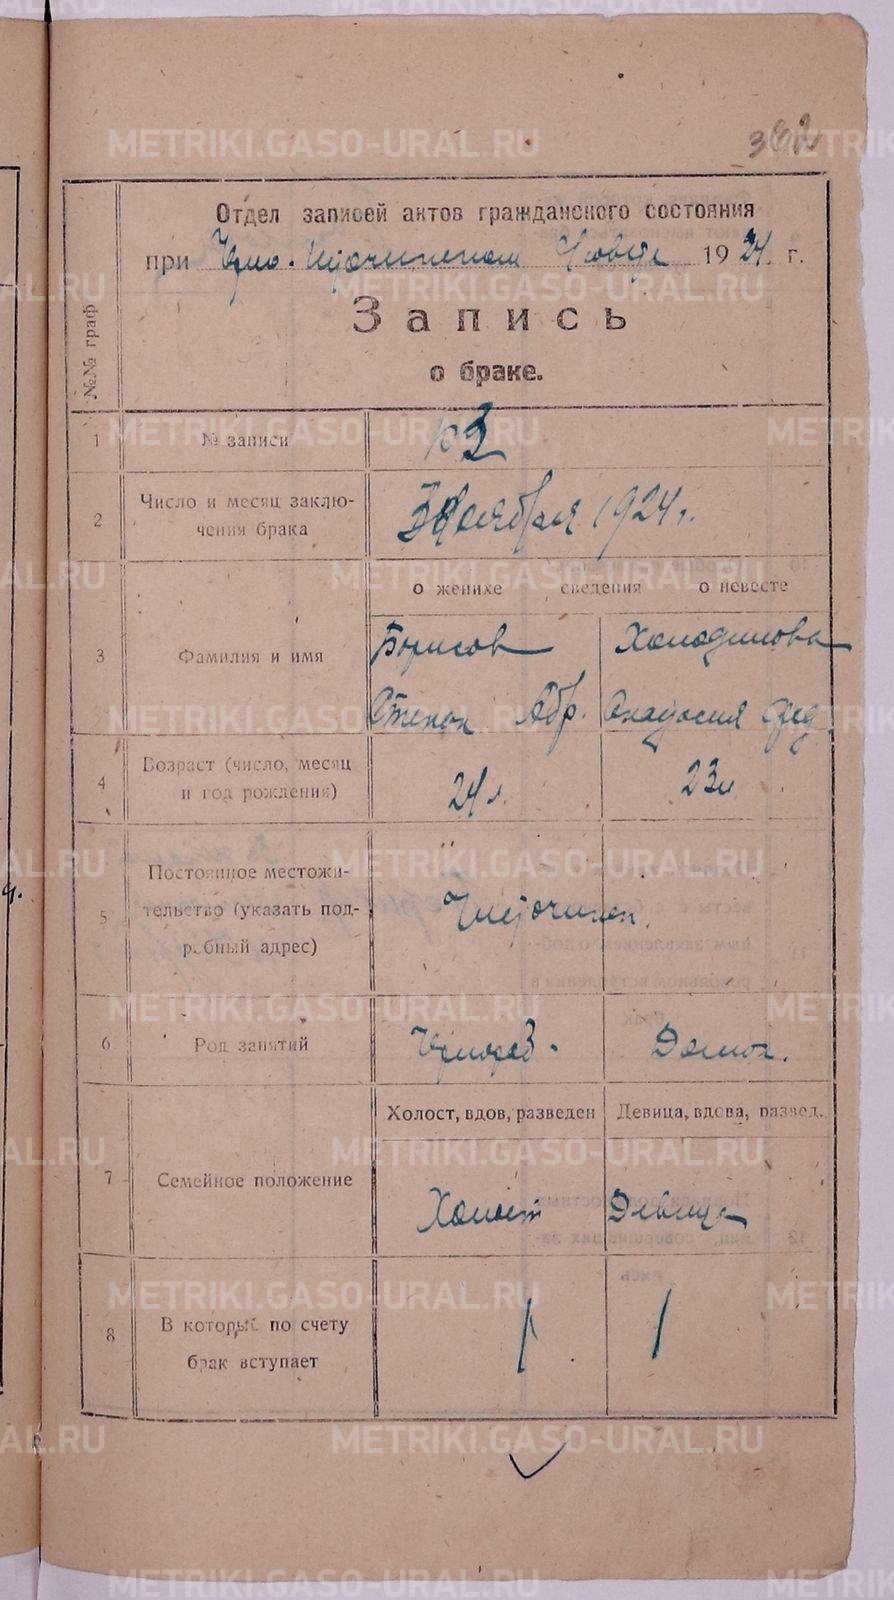 362
Отдел записей актов гражданского состояния
при 1924 г.
Запись
о браке.
№№ граф
1 № записи 3
2 Число и месяц заключения брака 3 Ноября 1924 г.
о женихе сведения о невесте
3 Фамилия и имя Борисов Холодилова
Степан Абр. Фед
4 Возраст (число, месяц и год рождения) 24 л. 23 л
5 Постоянное местожительство (указать подробный адрес)
6 Род занятий Домох.
Холост, вдов, разведен Девица, вдова, развед.
7 Семейное положение Холост Девица
8 В который по счету брак вступает 1 1
METRIKI.GASO-URAL.RU